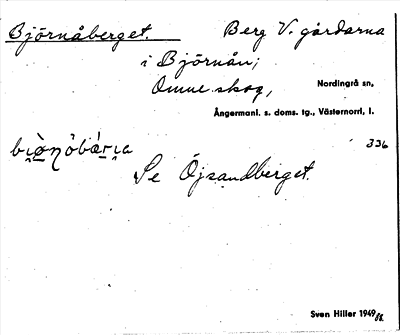 Björnåberget. Berg V. gårdarna
i Björnån;
Omne skog, Nordingrå sn.
Ångermanl. s. doms. tg., Västernorrl, l.
336
Se Öjsandberget.
Sven Hiller 1949